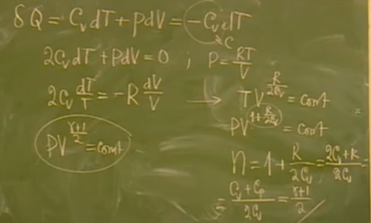 δQ = C_v dT + pdV = -C_v dT
2C
2C_v dT + pdV = 0 ; P = RT/V
2C_v dT/T = -R dV/V → TV^(R/2C_v) = const
PV^(1+R/2C_v) = const
PV^(γ+1/2) = const
n = 1 + R/2C_v = 2C_v+R/2C_v =
= C_v+C_p/2C_v = γ+1/2